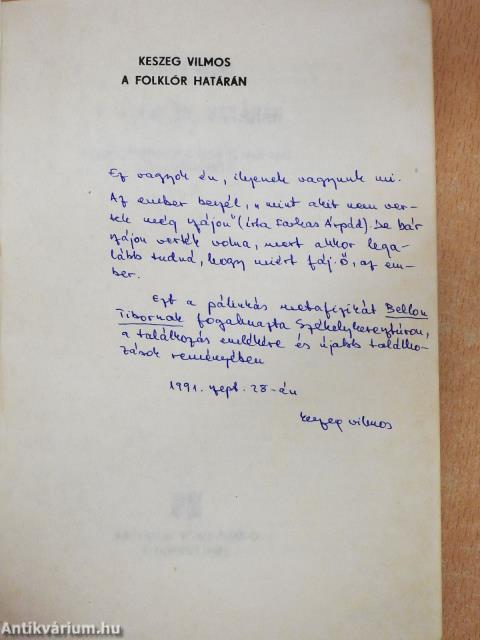 KESZEG VILMOS
A FOLKLÓR HATÁRÁN
Ez vagyok én, ilyenek vagyunk mi.
Az ember beszél, „mint akit nem ver-
tek még szájon" (írta Farkas Árpád). De bár
szájon verték volna, mert akkor lega-
lább tudná, hogy miért fáj ő, az em-
ber.
Ezt a pálinkás metafizikát Bellon
Tibornak fogalmazta Székelykeresztúron,
a találkozás emlékére és újabb találko-
zások reményében
1991. szept. 28-án
Keszeg Vilmos
Antikvárium.hu